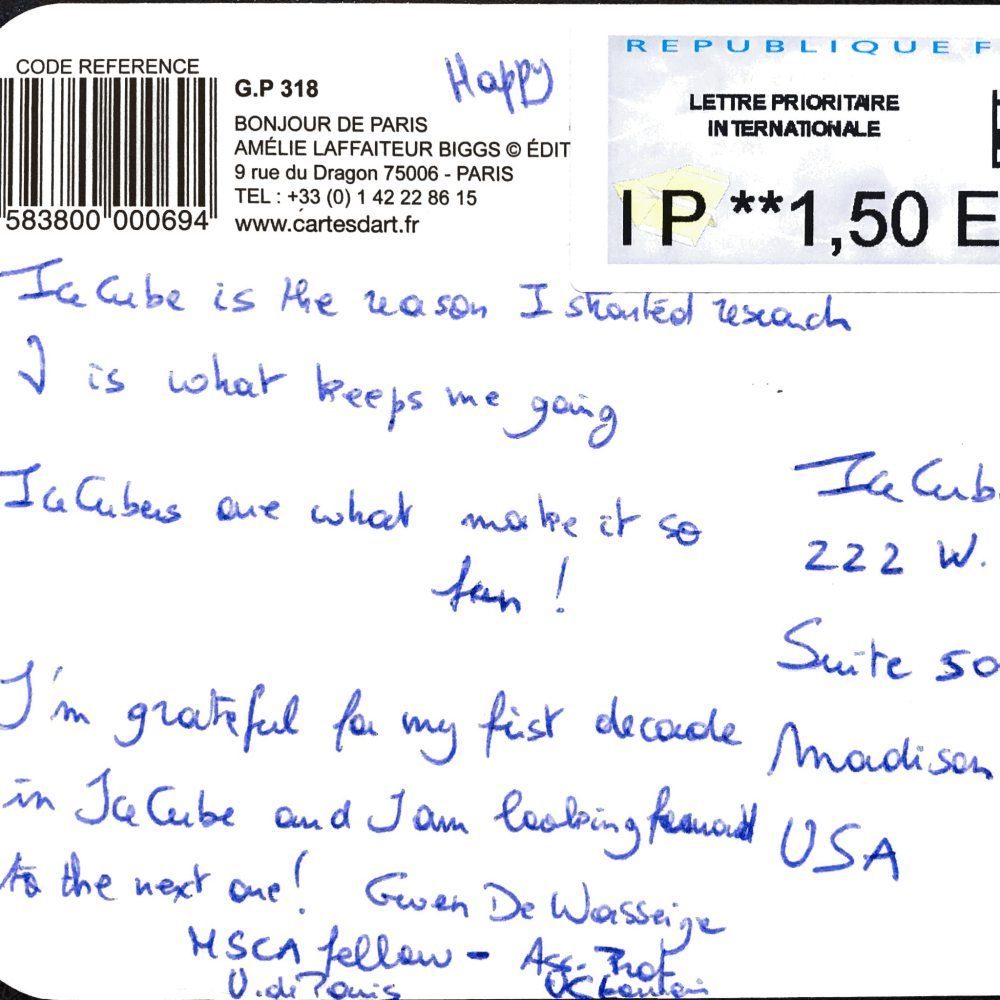 CODE REFERENCE
583800 000694
G.P 318
BONJOUR DE PARIS
AMÉLIE LAFFAITEUR BIGGS © ÉDIT
9 rue du Dragon 75006 - PARIS
TEL : +33 (0) 1 42 22 86 15
www.cartesdart.fr
Happy
REPUBLIQUE F
LETTRE PRIORITAIRE
INTERNATIONALE
IP **1,50 E
IceCube is the reason I started research
I is what keeps me going
IceCubers are what make it so
fun!
I'm grateful for my first decade
in IceCube and I am looking forward
to the next one!
Gwen De Wasseige
MSCA fellow - Ass. Prof
U. de Paris UCLouvain
IceCub
222 W.
Suite 50
Madison
USA